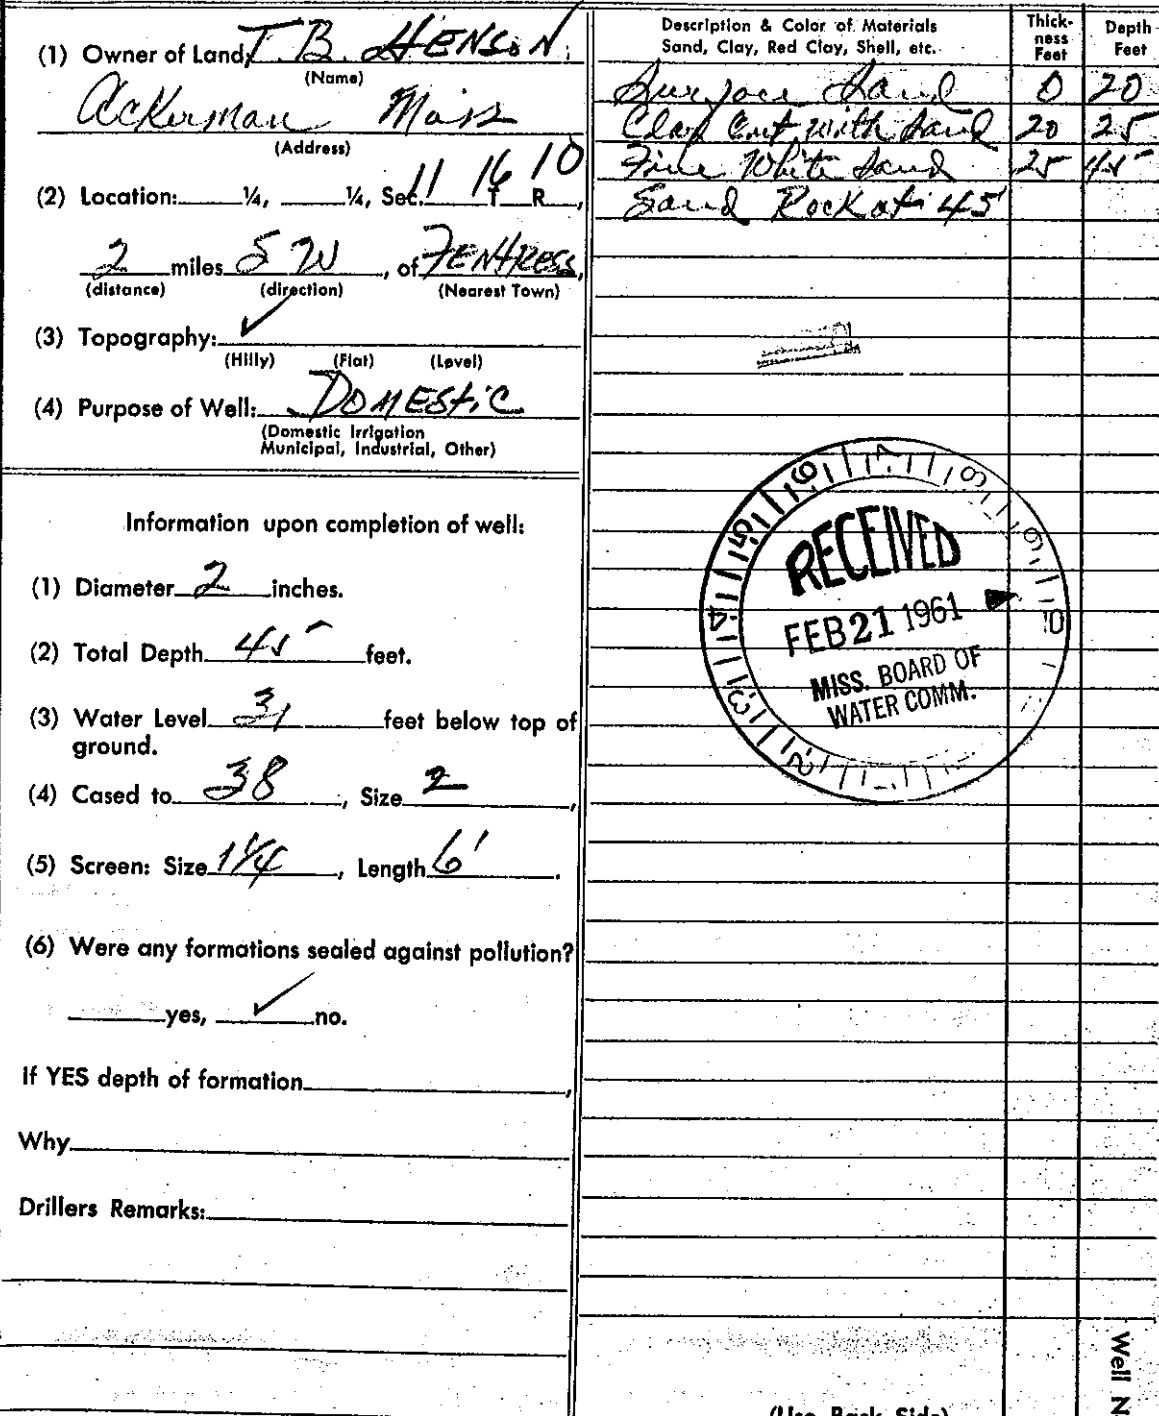 (1) Owner of Land T. B. HENSON
(Name)
Ackerman Miss
(Address)
(2) Location: ¼, ¼, Sec. 11 T 16 R 10,
2 miles S W, of FENTRESS,
(distance) (direction) (Nearest Town)
(3) Topography: ✓
(Hilly) (Flat) (Level)
(4) Purpose of Well: DOMESTIC
(Domestic Irrigation
Municipal, Industrial, Other)
Information upon completion of well:
(1) Diameter 2 inches.
(2) Total Depth 45 feet.
(3) Water Level 31 feet below top of
ground.
(4) Cased to 38, Size 2,
(5) Screen: Size 1 1/4, Length 6'.
(6) Were any formations sealed against pollution?
yes, ✓ no.
If YES depth of formation,
Why
Drillers Remarks:
Description & Color of Materials
Sand, Clay, Red Clay, Shell, etc.
Thick-
ness
Feet
Depth
Feet
Surface Sand 0 20
Clay Cut with Sand 20 25
Fine White Sand 25 45
Sand Rock at 45'
RECEIVED
FEB 21 1961
MISS. BOARD OF
WATER COMM.
(Use Back Side)
Well N